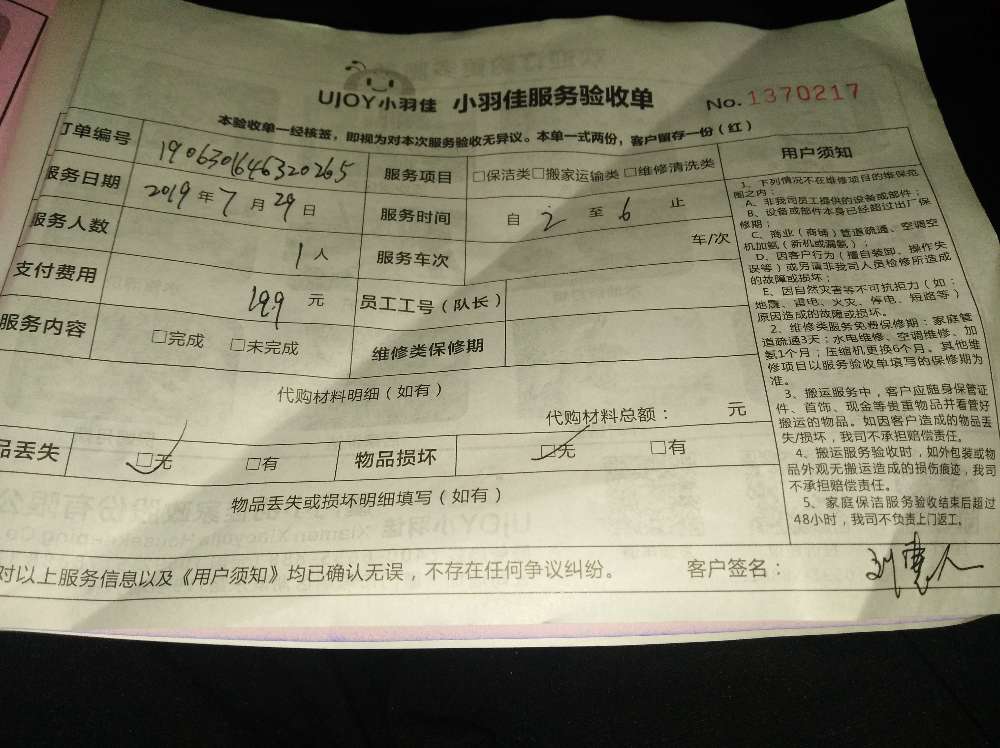 UJOY小羽佳 小羽佳服务验收单 No.1370217
本验收单一经核签，即视为对本次服务验收无异议。本单一式两份，客户留存一份（红）
订单编号 1906301646320265 服务项目 □保洁类□搬家运输类 □维修清洗类
服务日期 2019年7月29日 服务时间 自 2 至 6 止
服务人数 1人 服务车次 车/次
支付费用 199 元 员工工号（队长）
服务内容 □完成 □未完成 维修类保修期
代购材料明细（如有）
代购材料总额： 元
品丢失 □无 □有 物品损坏 □无 □有
物品丢失或损坏明细填写（如有）
对以上服务信息以及《用户须知》均已确认无误，不存在任何争议纠纷。 客户签名：
用户须知
1、下列情况不在维修项目的维保范
围之内：
A、非我司员工提供的设备或部件；
B、设备或部件本身已经超过出厂保
修期；
C、商业（商铺）管道疏通、空调空
机加氨（新机或漏氨）；
D、因客户行为（擅自装卸、操作失
误等）或另请非我司人员检修所造成
的故障或损坏；
E、因自然灾害等不可抗拒力（如：
地震、雷电、火灾、停电、短路等）
原因造成的故障或损坏。
2、维修类服务免费保修期：家庭管
道疏通3天；水电维修、空调维修、加
氨1个月；压缩机更换6个月。其他维
修项目以服务验收单填写的保修期为
准。
3、搬运服务中，客户应随身保管证
件、首饰、现金等贵重物品并看管好
搬运的物品。如因客户造成的物品丢
失/损坏，我司不承担赔偿责任。
4、搬运服务验收时，如外包装或物
品外观无搬运造成的损伤痕迹，我司
不承担赔偿责任。
5、家庭保洁服务验收结束后超过
48小时，我司不负责上门返工。